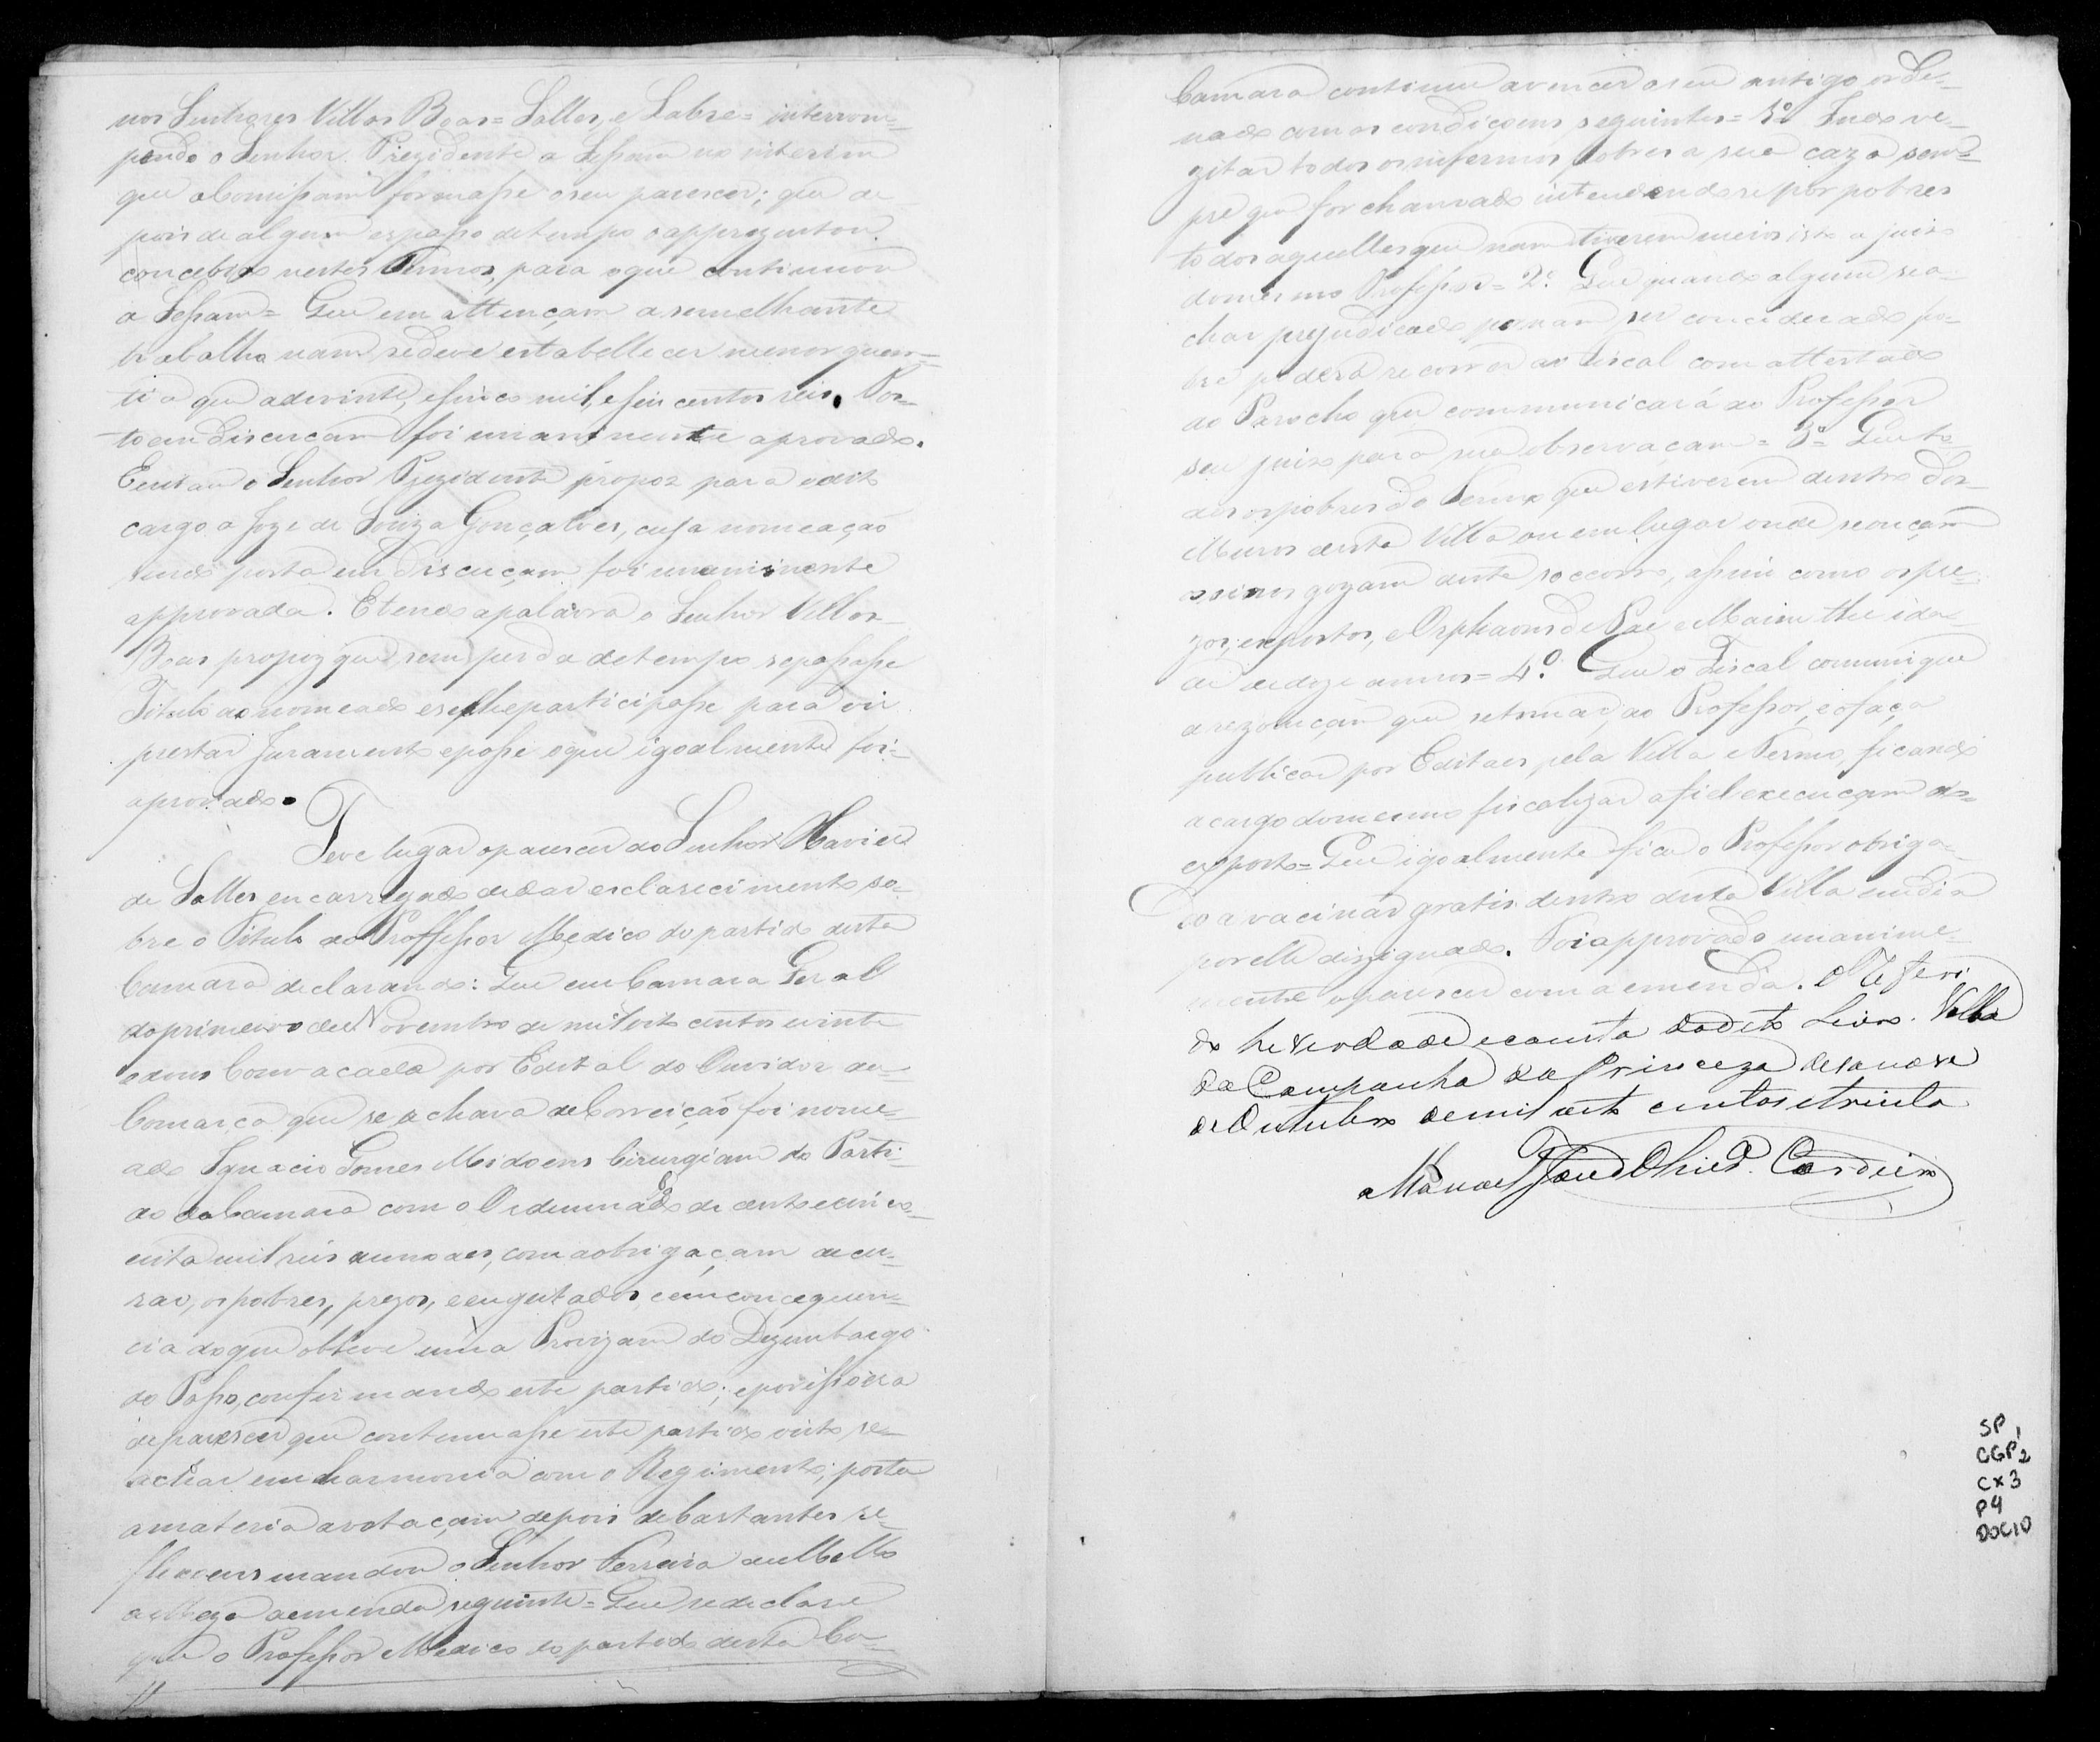 nos Senhores Villas Boas = Salles, e Labre = interrom=
pendo o Senhor Prezidente a Sessam no interim
que a Comissam formasse o seu parescer; que de
pois de algum espasso de tempo o apprezentou
concebido nestes Termos, para o que continuou
a Sessam = Que em attençam a semelhante
trabalho nam se deve estabellecer menor quan=
tia que a de vinte, e sinco mil, e seis centos reis. Pos=
to em discuçam foi unanimente aprovado.
Entam o Senhor Prezidente propoz para o dito
cargo a Joze de Souza Gonçalves, cuja nomeação
sendo posta em discuçam foi unanimente
approvada. E tendo a palavra o Senhor Villas
Boas propoz que sem perda de tempo se passasse
Titulo ao nomeado e se lhe participasse para vir
prestar Juramento e posse o que igoalmente foi=
aprovado.
Teve lugar o parescer do Senhor Xavier
de Salles encarregado de dar esclarecimento so=
bre o Titulo do Proffessor Medico do partido desta
Camara declarando: Que em Camara Geral
do primeiro de Novembro de mil oito centos e vinte
e dous Convocada por Edital do Ouvidor da
Comarca que se achava de Correição foi nome=
ado Ignacio Gomes Midoens Cirurgiam do Parti=
do da Camara com o Ordennado de cento e cinco=
enta mil reis annoaes, com a obrigaçam de cu=
rar, os pobres, prezos, e engeitados, e em concequen=
cia do que obteve uma Provizam do Dezembargo
do Passo, confirmando este partido; e por isso era
de parescer que continuasse este partido visto se
achar em harmonia com o Regimento; posta
a materia a votaçam depois de bastantes re=
flexoens mandou o Senhor Ferreira de Mello
a Meza a emenda seguinte = Que se declare
que o Professor Medico do partido desta Ca=
Camara continua a vencer o seu antigo orde=
nado com as condiçoens seguintes = 1ª Indo ve=
zitar todos os infermos pobres a sua caza sem=
pre que for chamado intendendo-se por pobres
todos aquelles que nam tiverem meios isto a juizo
do mesmo Professor = 2ª Que quando algum se a=
char prejudicado por nam ser conciderado po=
bre poderá recorrer ao Fiscal com attestado
do Parocho que communicará ao Professor
seu juizo para sua observaçam = 3ª Que to
dos os pobres do Termo que estiverem dentro dos
Muros desta Villa ou em lugar onde se ouçam
os sinos gozam deste soccorro, assim como os pre=
zos, expostos, e Orphaons de Pae e Maim thé ida=
de de doze annos = 4º Que o Fiscal comunique
a rezoluçam que se tomar, ao Professor, e o faça
publicar por Editaes, pela Villa e Termo, ficando
a cargo do mesmo fiscalizar a fiel execuçam do=
exposto = Que igoalmente fica o Professor obriga=
do a vacinar gratis dentro desta Villa em dia
por elle dizignado. Foi approvado unanime=
mente o parescer com a emenda. O referi
do he verdade e consta do dito Livro. Villa
da Campanha da Princeza de
de Outubro de mil oito centos e trinta
Manoel Cordeiro
SP1
CGP2
CX3
P4
DOC10